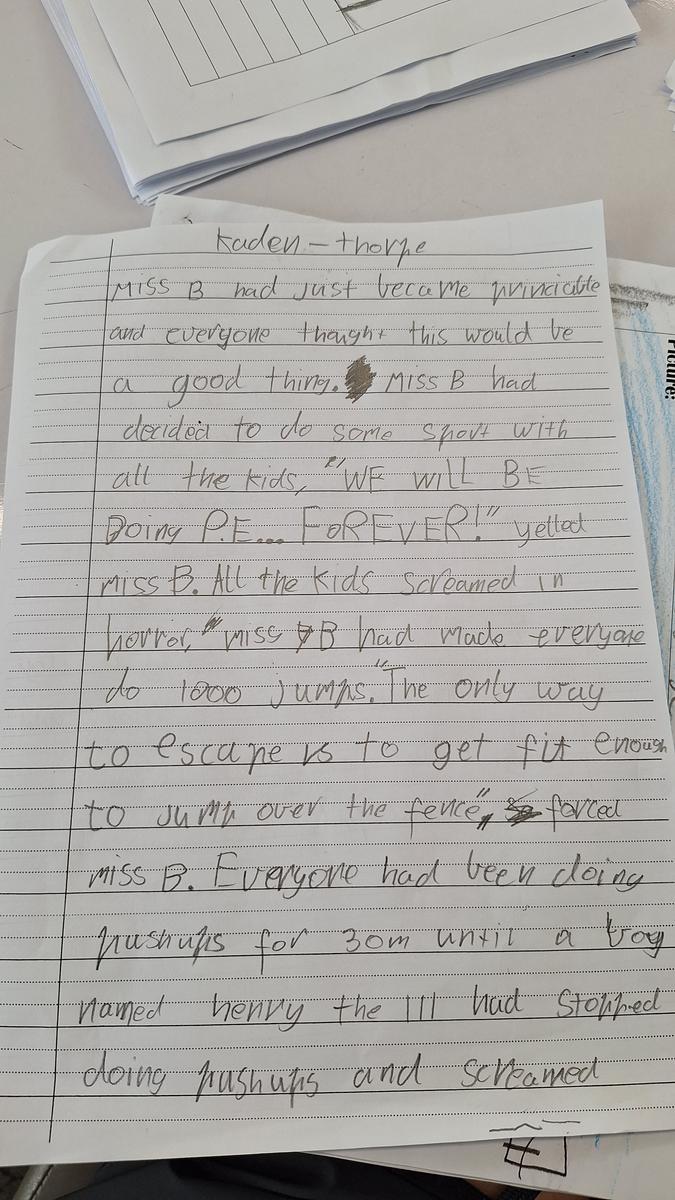 Kaden - thorpe
Miss B had just became princiable
and everyone thought this would be
a good thing. Miss B had
decided to do some sport with
all the kids, "WE WiLL BE
Doing P.E... FoREVER!" yelled
miss B. All the kids screamed in
horror, "miss B had made everyone
do 1000 jumps." "The only way
to escape is to get fit enough
to jump over the fence", forced
miss B. Everyone had been doing
pushups for 30m until a boy
named henry the III had stopped
doing pushups and screamed
Picture: